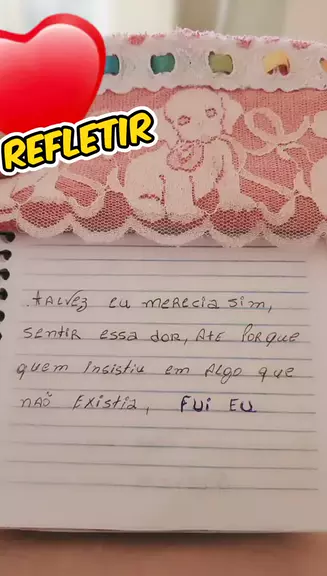 REFLETIR
.tALVEZ EU MERECIA SIM,
SENTIR ESSA DOR, ATE PORQUE
QUEM INSISTIU EM ALGO QUE
NAÕ EXISTIA, FUI EU